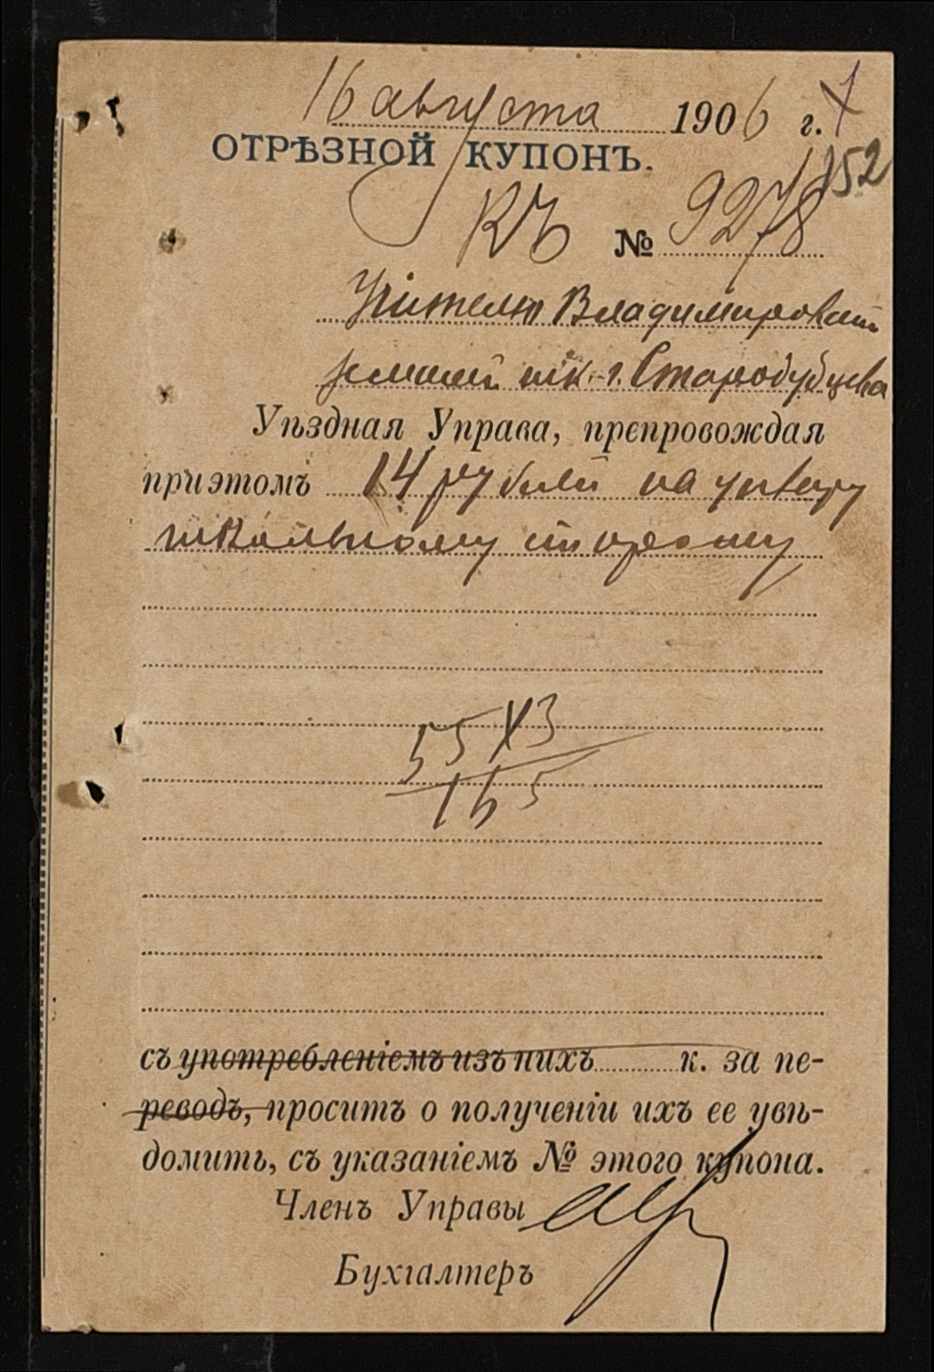 16 августа 1906 г.
152
ОТРѢЗНОЙ КУПОНЪ.
Къ № 9278
Учителю Владимировской
земской шк. г. Стародубцева
Уѣздная Управа, препровождая
при этомъ 14 рублей на уплату
школьному сторожу
55 х 3
165
съ употребленіемъ изъ нихъ к. за пе-
реводъ, проситъ о полученіи ихъ ее увѣ-
домить, съ указаніемъ № этого купона.
Членъ Управы
Бухгалтеръ